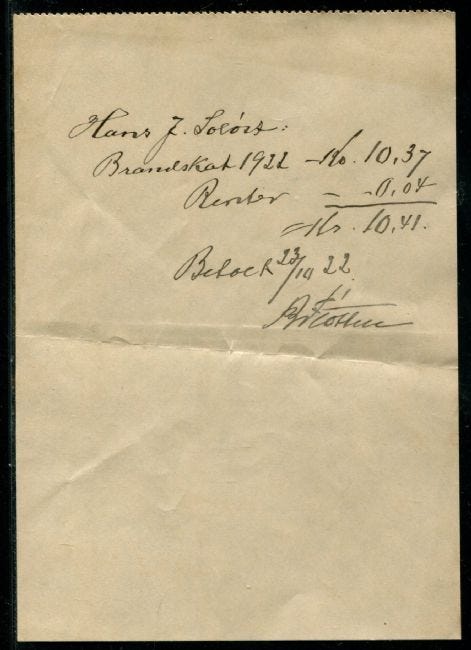 Hans J. Solóst:
Brandskat 1922 - Kr. 10,37
Renter - - 0,04
Kr. 10,41.
Betalt 23/10 22.